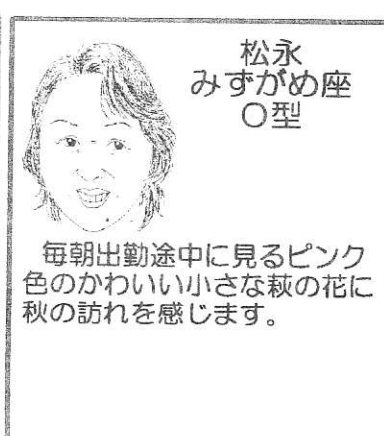 松永
みずがめ座
O型
毎朝出勤途中に見るピンク
色のかわいい小さな萩の花に
秋の訪れを感じます。